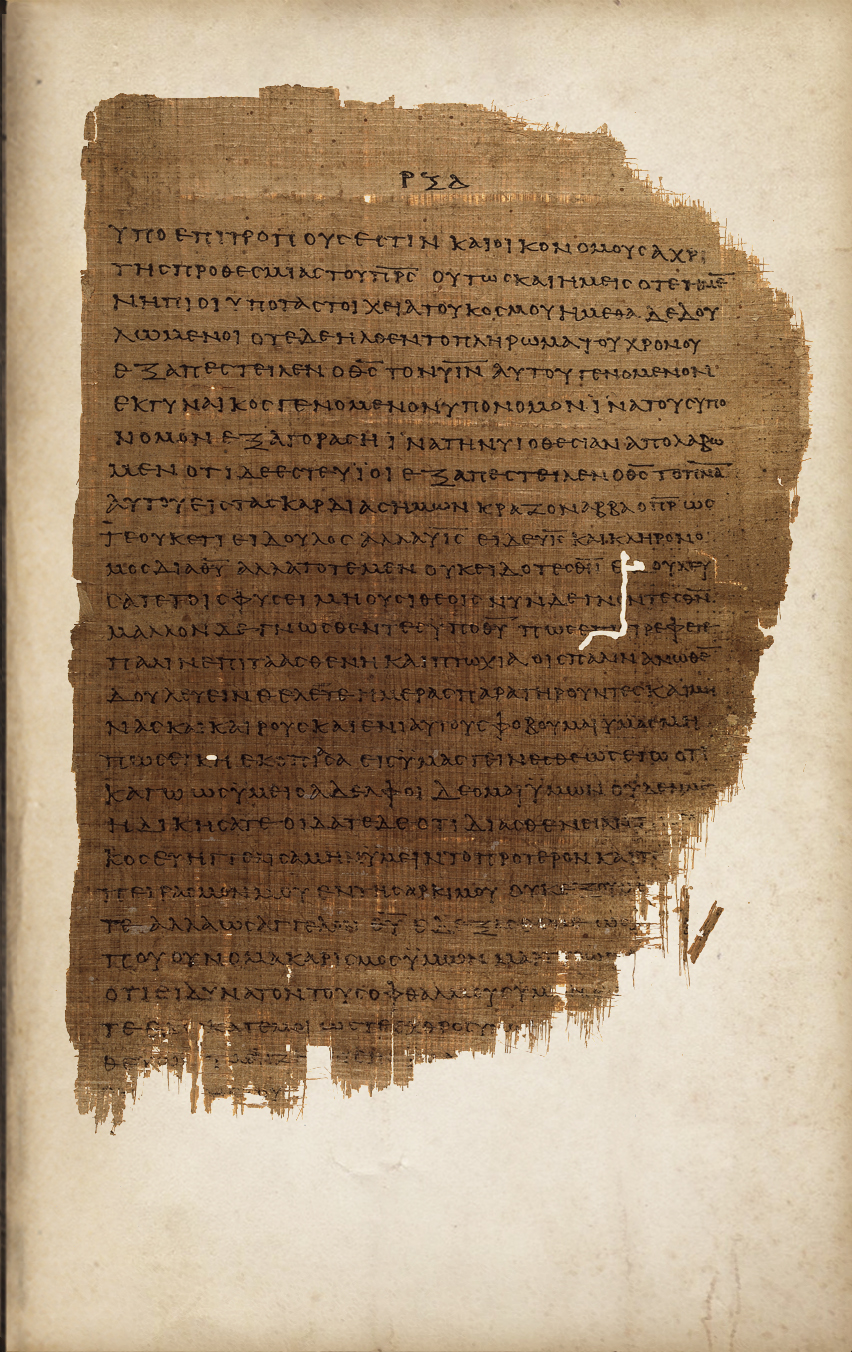 ΡΞΔ
ΥΠΟ ΕΠΙΤΡΟΠΟΥΣ ΕΣΤΙΝ ΚΑΙ ΟΙΚΟΝΟΜΟΥΣ ΑΧΡΙ
ΤΗΣ ΠΡΟΘΕΣΜΙΑΣ ΤΟΥ Π̅Ρ̅Σ̅ ΟΥΤΩΣ ΚΑΙ ΗΜΕΙΣ ΟΤΕ ΗΜΕ̅
ΝΗΠΙΟΙ ΥΠΟ ΤΑ ΣΤΟΙΧΕΙΑ ΤΟΥ ΚΟΣΜΟΥ ΗΜΕΘΑ ΔΕΔΟΥ
ΛΩΜΕΝΟΙ ΟΤΕ ΔΕ ΗΛΘΕΝ ΤΟ ΠΛΗΡΩΜΑ ΤΟΥ ΧΡΟΝΟΥ
ΕΞΑΠΕΣΤΕΙΛΕΝ Ο Θ̅Σ̅ ΤΟΝ Υ̅Ι̅Ν̅ ΑΥΤΟΥ ΓΕΝΟΜΕΝΟΝ
ΕΚ ΓΥΝΑΙΚΟΣ ΓΕΝΟΜΕΝΟΝ ΥΠΟ ΝΟΜΟΝ ΙΝΑ ΤΟΥΣ ΥΠΟ
ΝΟΜΟΝ ΕΞΑΓΟΡΑΣΗ ΙΝΑ ΤΗΝ ΥΙΟΘΕΣΙΑΝ ΑΠΟΛΑΒΩ
ΜΕΝ ΟΤΙ ΔΕ ΕΣΤΕ ΥΙΟΙ ΕΞΑΠΕΣΤΕΙΛΕΝ Ο Θ̅Σ̅ ΤΟ Π̅Ν̅Α̅
ΑΥΤΟΥ ΕΙΣ ΤΑΣ ΚΑΡΔΙΑΣ ΗΜΩΝ ΚΡΑΖΟΝ ΑΒΒΑ Ο Π̅Ρ̅ ΩΣ
ΤΕ ΟΥΚΕΤΙ ΕΙ ΔΟΥΛΟΣ ΑΛΛΑ Υ̅Ι̅Σ̅ ΕΙ ΔΕ Υ̅Ι̅Σ̅ ΚΑΙ ΚΛΗΡΟΝΟ
ΜΟΣ ΔΙΑ Θ̅Υ̅ ΑΛΛΑ ΤΟΤΕ ΜΕΝ ΟΥΚ ΕΙΔΟΤΕΣ Θ̅Ν̅ ΕΔΟΥΛΕΥ
ΣΑΤΕ ΤΟΙΣ ΦΥΣΕΙ ΜΗ ΟΥΣΙ ΘΕΟΙΣ ΝΥΝ ΔΕ ΓΝΟΝΤΕΣ Θ̅Ν̅
ΜΑΛΛΟΝ ΔΕ ΓΝΩΣΘΕΝΤΕΣ ΥΠΟ Θ̅Υ̅ ΠΩΣ ΕΠΙΣΤΡΕΦΕΤΕ
ΠΑΛΙΝ ΕΠΙ ΤΑ ΑΣΘΕΝΗ ΚΑΙ ΠΤΩΧΙΑ ΟΙΣ ΠΑΛΙΝ ΑΝΩΘΕ̅
ΔΟΥΛΕΥΕΙΝ ΘΕΛΕΤΕ ΗΜΕΡΑΣ ΠΑΡΑΤΗΡΟΥΝΤΕΣ ΚΑΙ ΜΗ
ΝΑΣ ΚΑΙ ΚΑΙΡΟΥΣ ΚΑΙ ΕΝΙΑΥΤΟΥΣ ΦΟΒΟΥΜΑΙ ΥΜΑΣ ΜΗ
ΠΩΣ ΕΙΚΗ ΕΚΟΠΙΑΣΑ ΕΙΣ ΥΜΑΣ ΓΕΙΝΕΣΘΕ ΩΣ ΕΓΩ ΟΤΙ
ΚΑΓΩ ΩΣ ΥΜΕΙΣ ΑΔΕΛΦΟΙ ΔΕΟΜΑΙ ΥΜΩΝ ΟΥΔΕΝ ΜΕ
ΗΔΙΚΗΣΑΤΕ ΟΙΔΑΤΕ ΔΕ ΟΤΙ ΔΙ ΑΣΘΕΝΕΙΑΝ
ΚΟΣ ΕΥΗΓΓΕΛΙΣΑΜΗΝ ΥΜΕΙΝ ΤΟ ΠΡΟΤΕΡΟΝ ΚΑΙ Τ
ΠΕΙΡΑΣΜΟΝ ΜΟΥ ΕΝ ΤΗ ΣΑΡΚΙ ΜΟΥ ΟΥΚ ΕΞΟΥ
ΤΕ ΑΛΛΑ ΩΣ ΑΓΓΕΛΟΝ Θ̅Υ̅ ΕΔΕΞΑΣΘΕ ΜΕ ΩΣ
ΠΟΥ ΟΥΝ Ο ΜΑΚΑΡΙΣΜΟΣ ΥΜΩΝ ΜΑΡΤ
ΟΤΙ ΕΙ ΔΥΝΑΤΟΝ ΤΟΥΣ ΟΦΘΑΛΜΟΥΣ ΥΜ
ΤΕ ΕΔΩΚΑΤΕ ΜΟΙ ΩΣΤΕ ΕΧΘΡΟΣ Υ